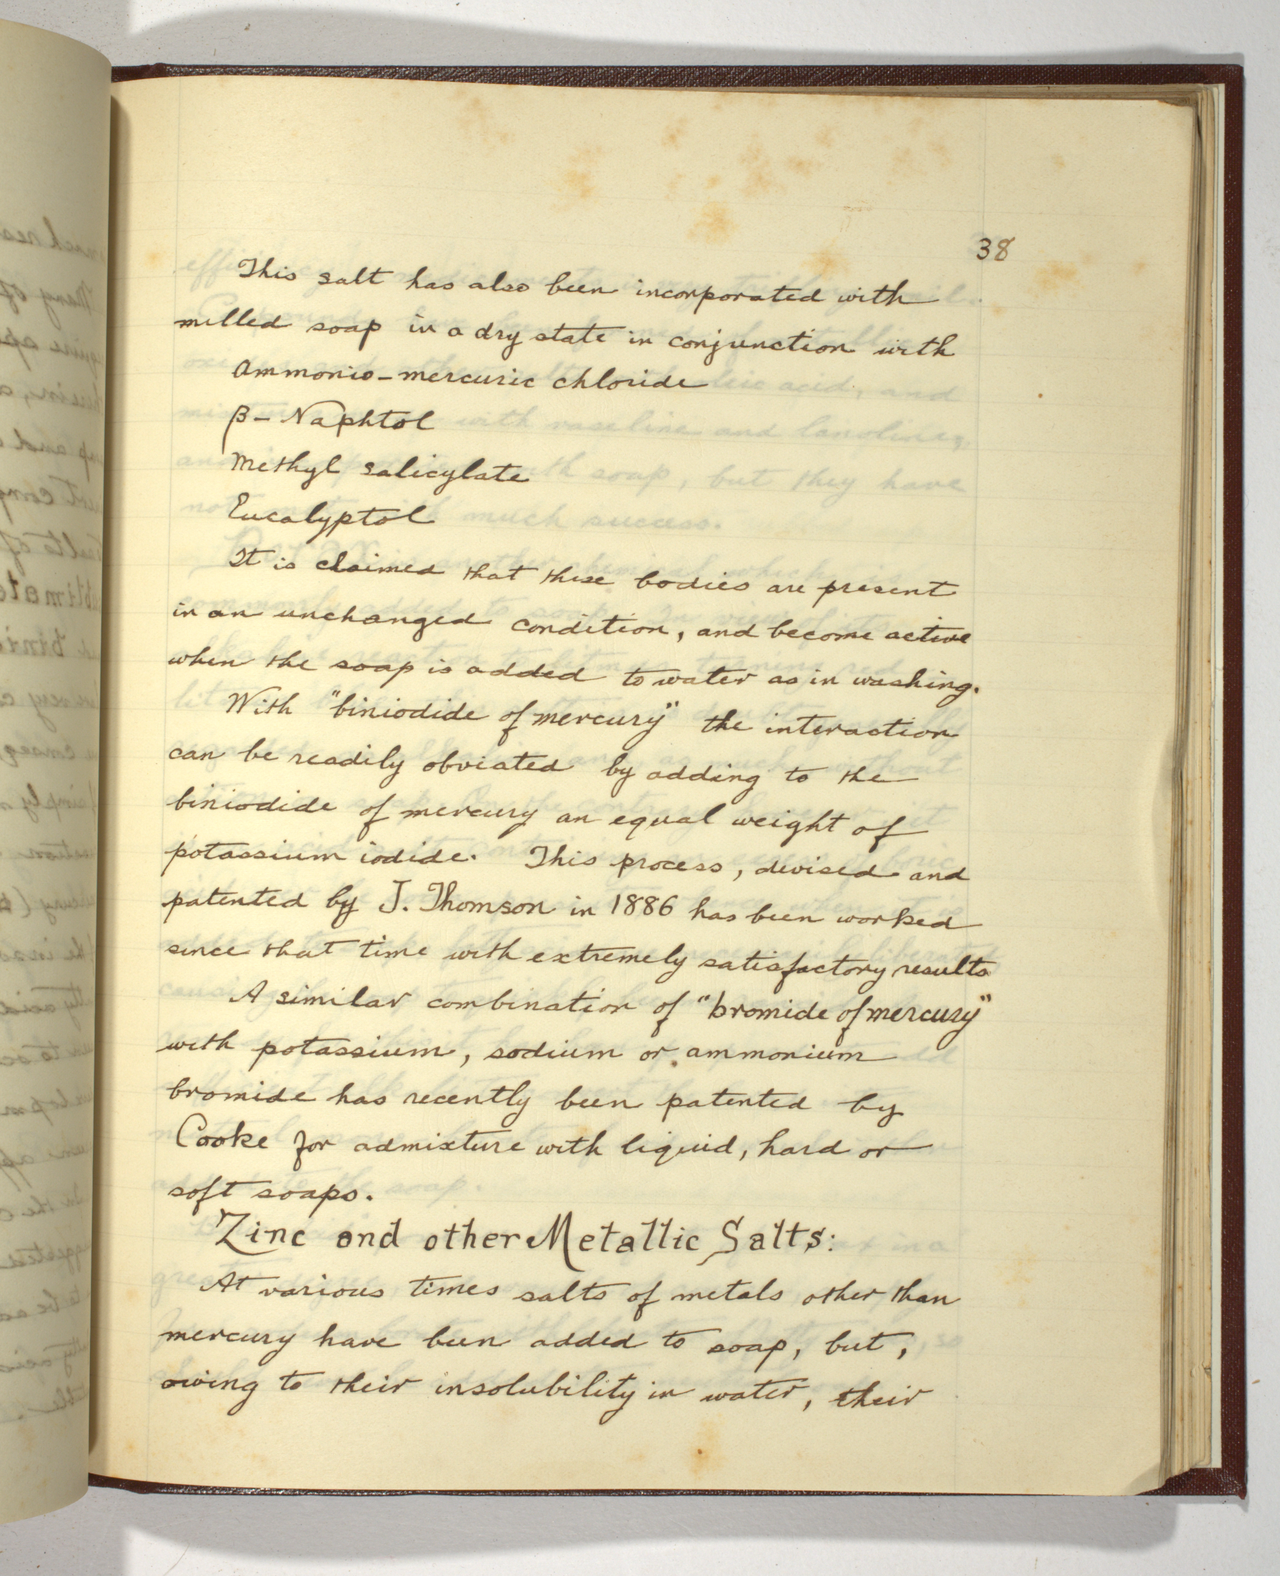 38
This salt has also been incorporated with
milled soap in a dry state in conjunction with
Ammonio-mercuric chloride
β-Naphtol
Methyl salicylate
Eucalyptol
It is claimed that these bodies are present
in an unchanged condition, and become active
when the soap is added to water as in washing.
With "biniodide of mercury" the interaction
can be readily obviated by adding to the
biniodide of mercury an equal weight of
potassium iodide. This process, devised and
patented by J. Thomson in 1886 has been worked
since that time with extremely satisfactory results
A similar combination of "bromide of mercury"
with potassium, sodium or ammonium
bromide has recently been patented by
Cooke for admixture with liquid, hard or
soft soaps.
Zinc and other Metallic Salts:
At various times salts of metals other than
mercury have been added to soap, but,
owing to their insolubility in water, their